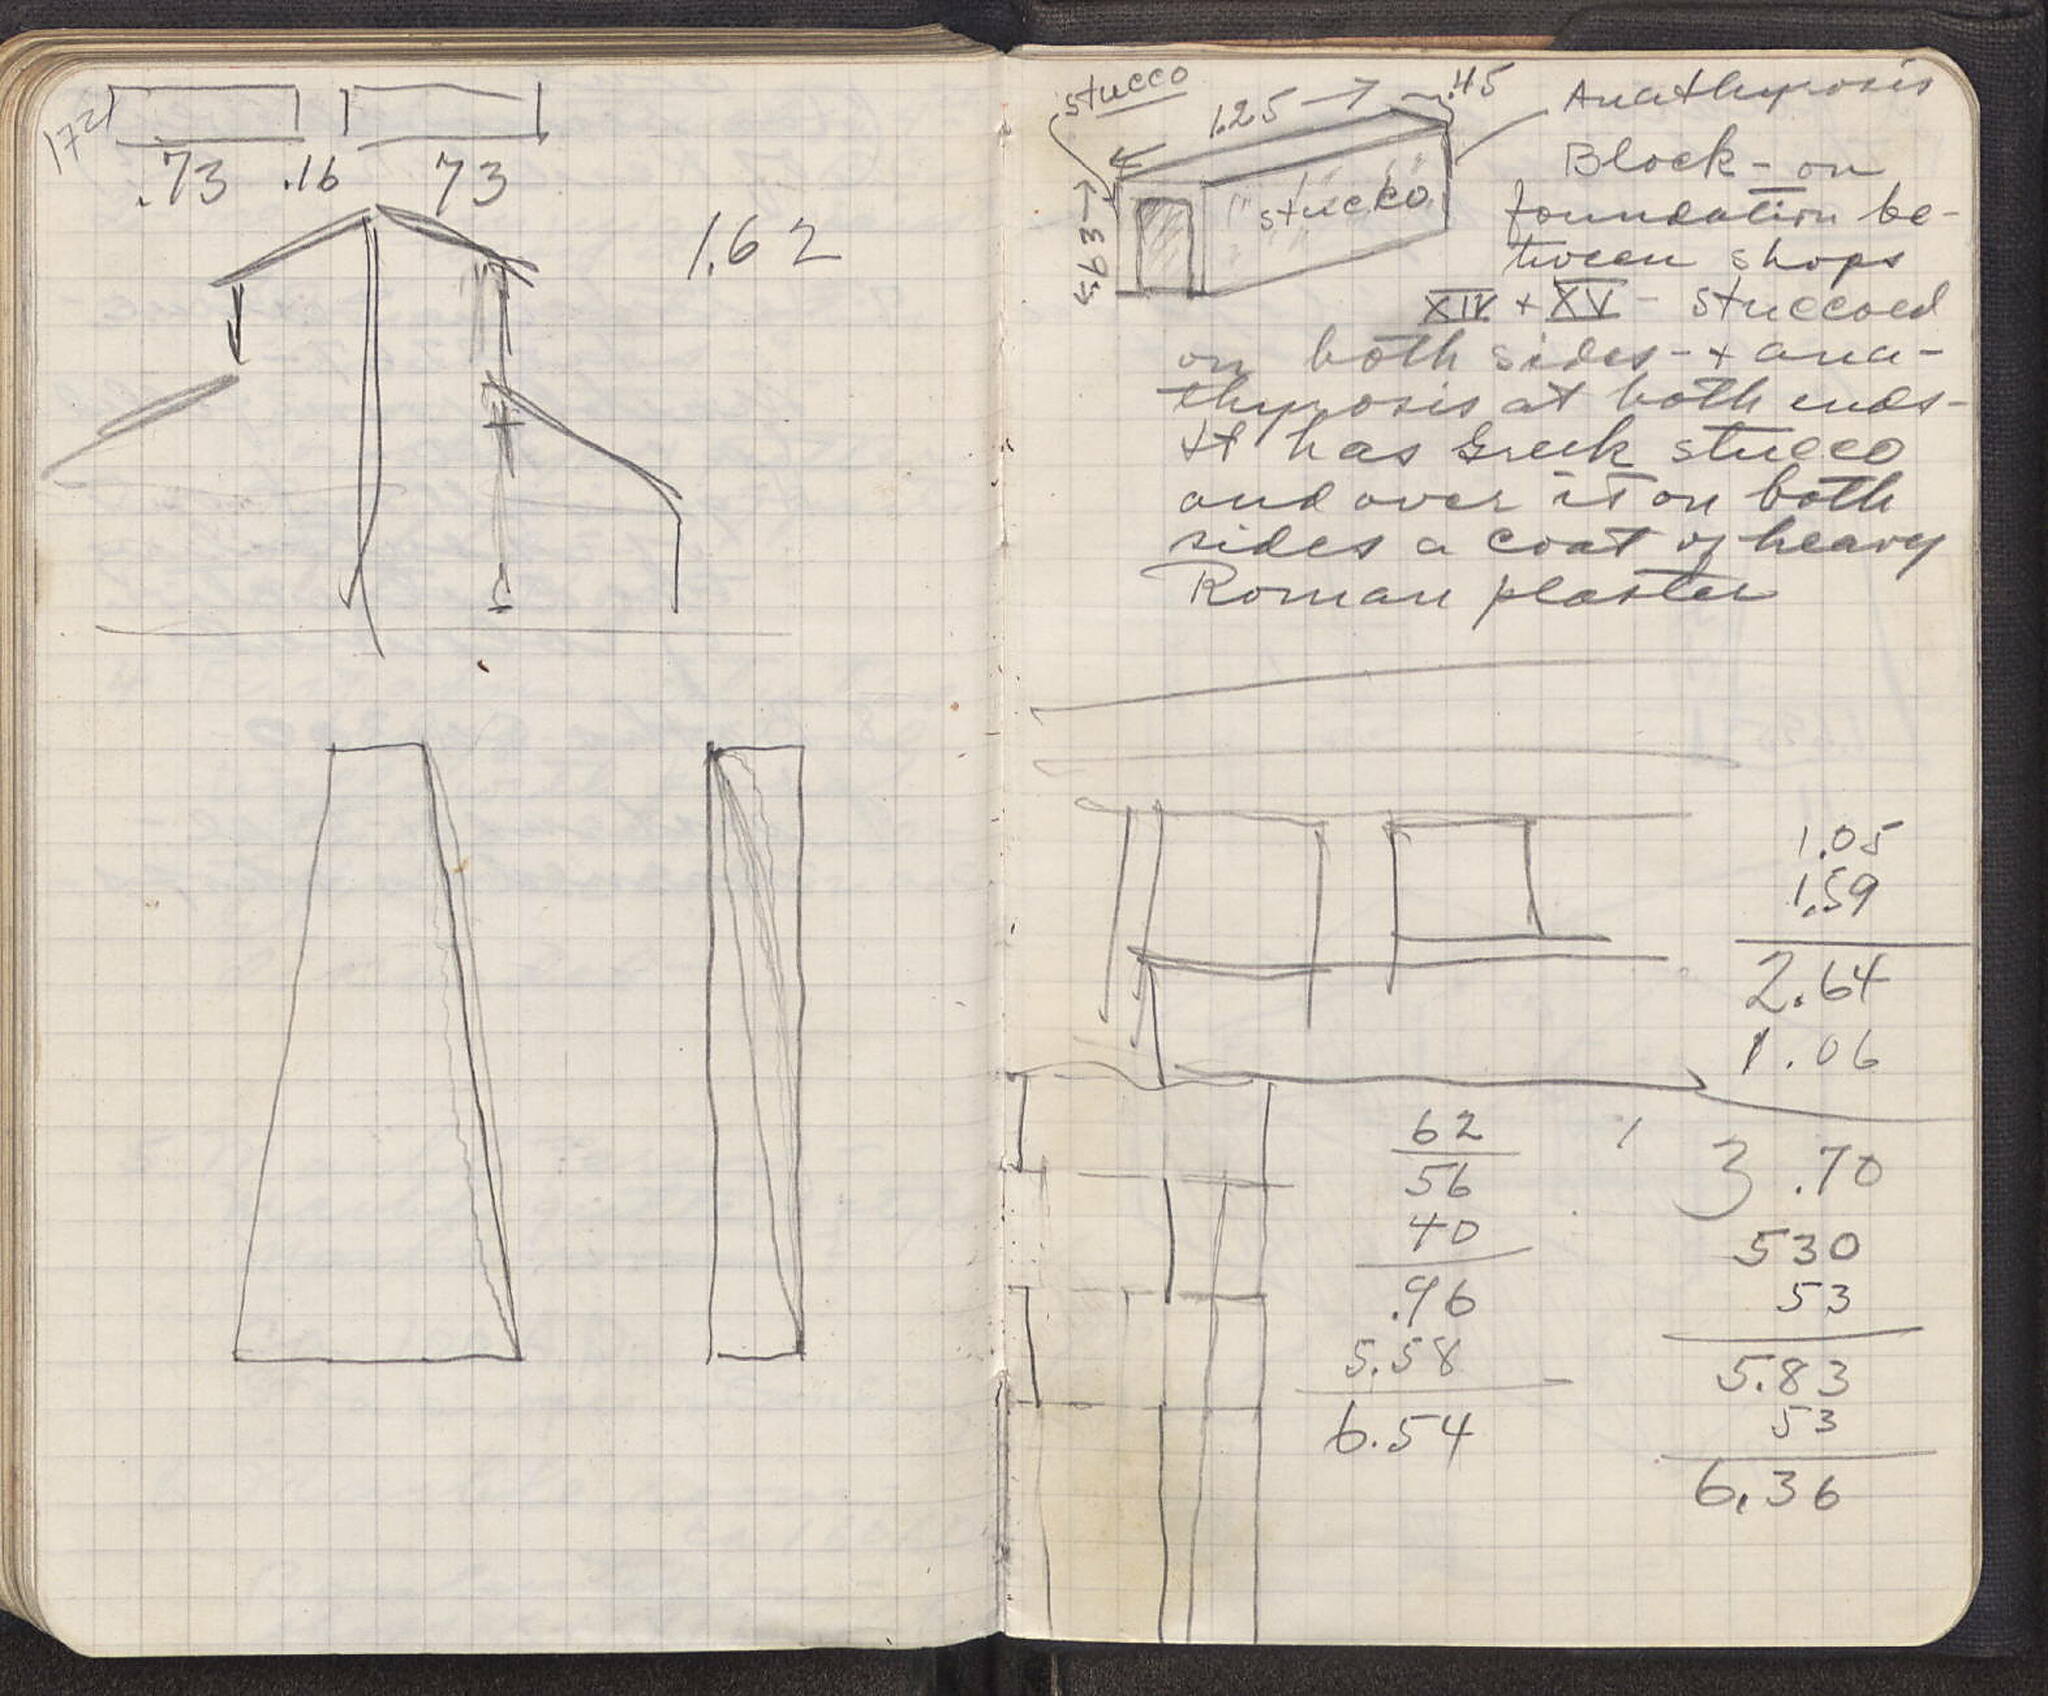 172
.73 .16 73
1.62
stucco
1.25
.45
.63
stucco
Anathyrosis
Block - on
foundation be-
tween shops
XIV + XV - stuccoed
on both sides - + ana-
thyrosis at both ends -
It has Greek stucco
and over it on both
sides a coat of heavy
Roman plaster
1.05
1.59
2.64
1.06
3.70
530
53
5.83
53
6.36
62
56
40
.96
5.58
6.54